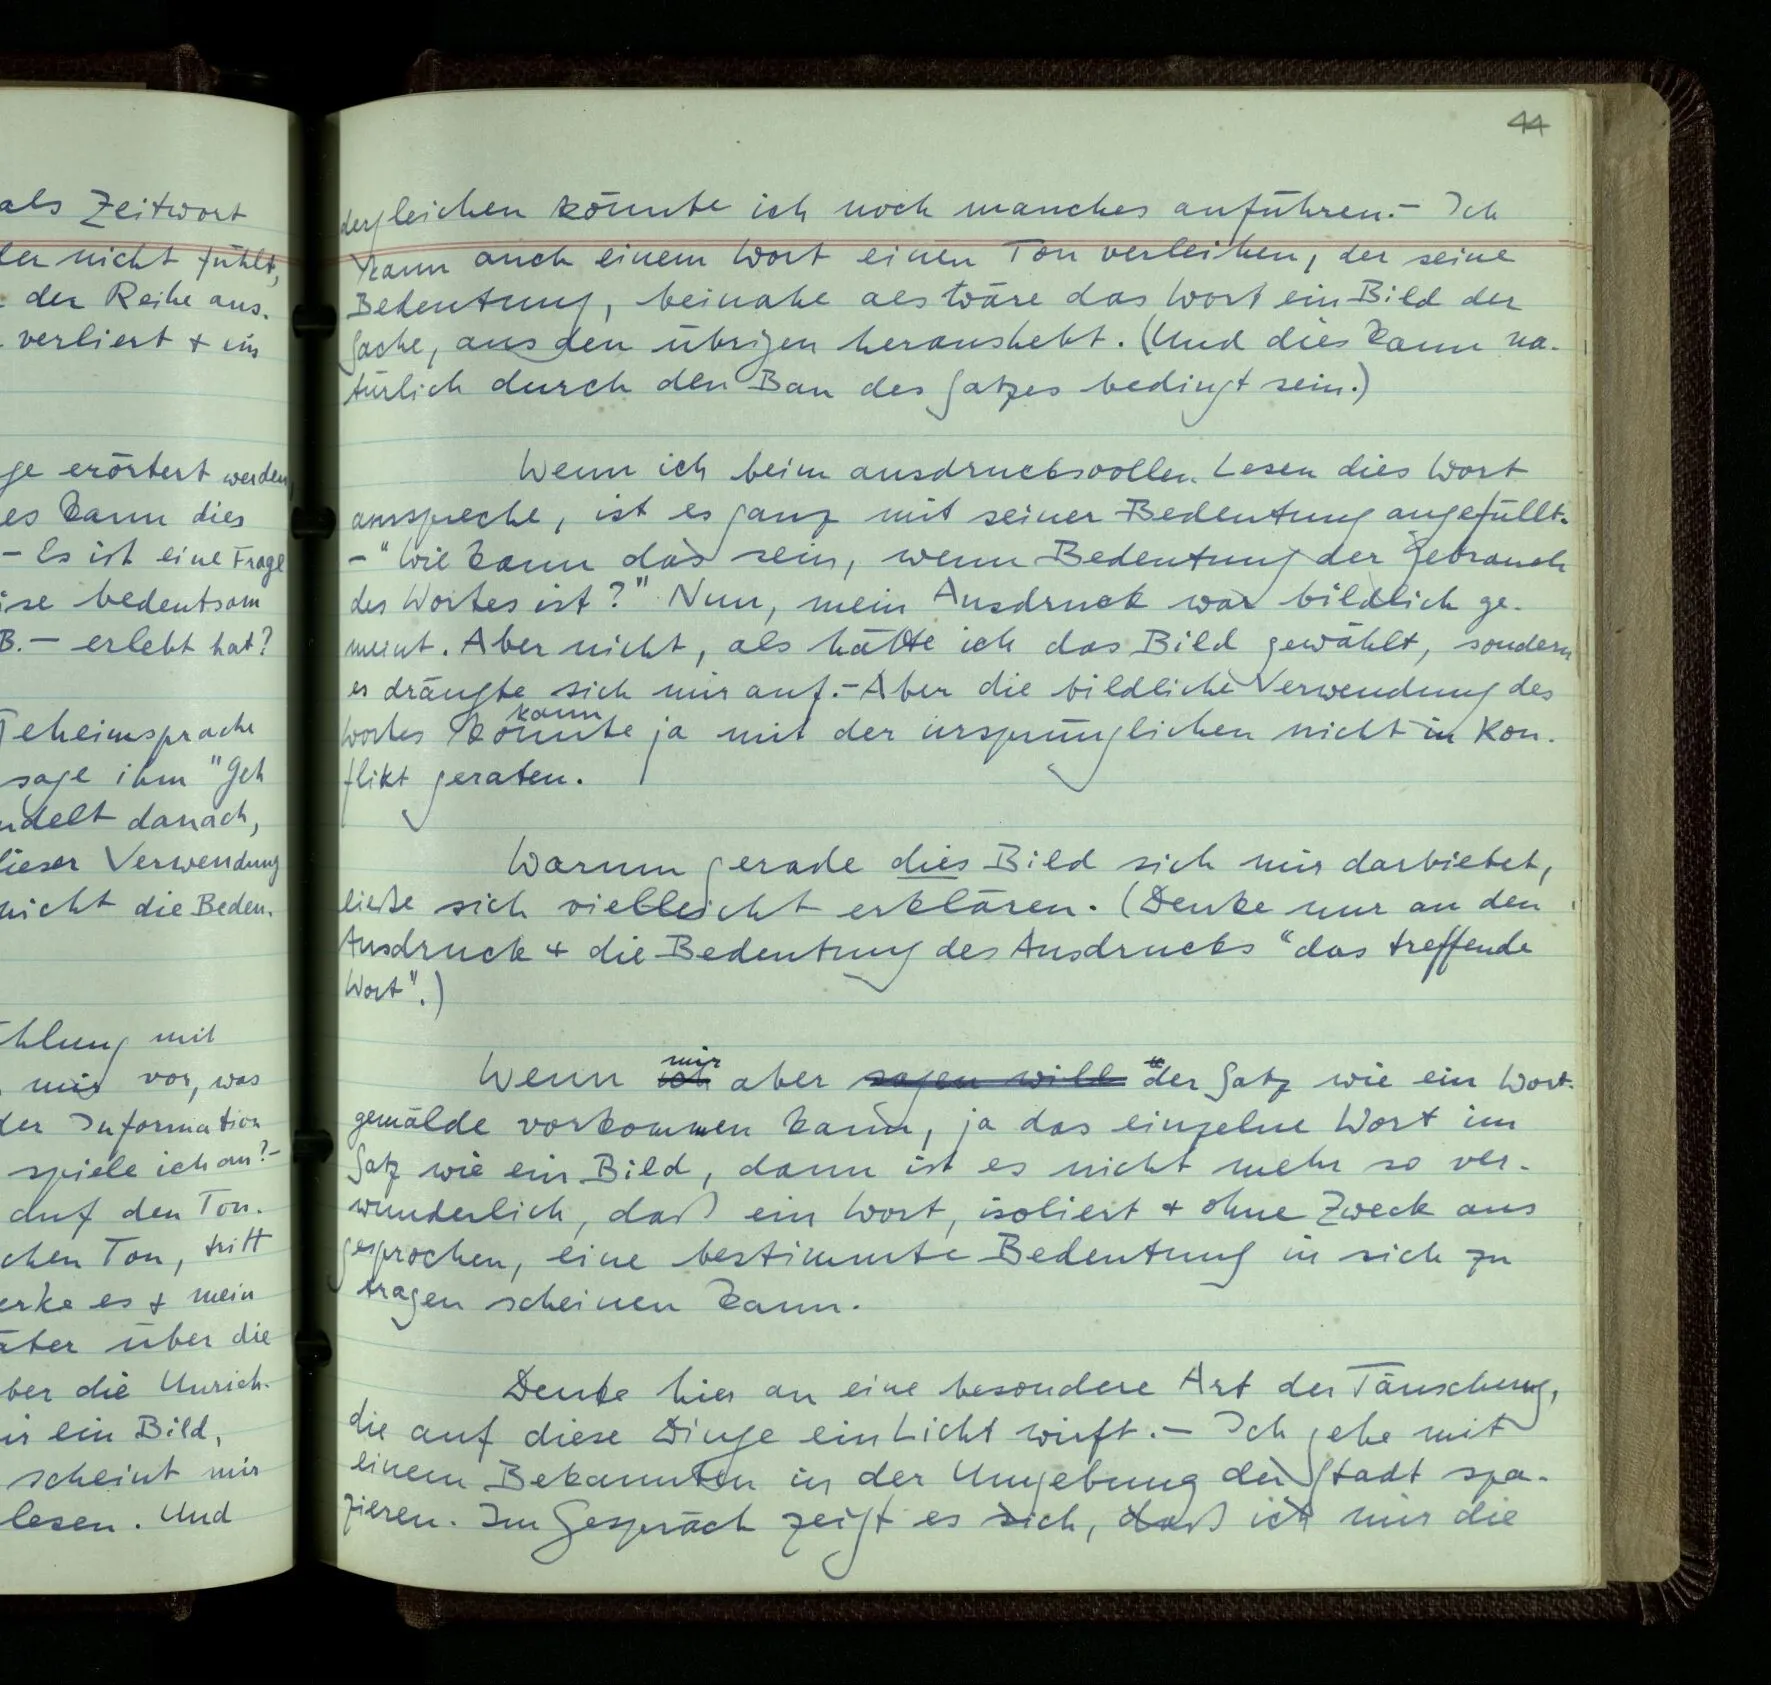 als Zeitwort
der nicht fühlt,
der Reihe aus.
verliert + im
ge erörtert werden
es kann dies
– Es ist eine Frage
ise bedeutsam
B. – erlebt hat?
Geheimsprache
sage ihm "Geh
ndelt danach,
dieser Verwendung
nicht die Beden.
hlung mit
mir vor, was
der Information
spiele ich an? –
auf den Ton.
chen Ton, tritt
erke es + mein
äter über die
ber die Unrich-
ir ein Bild,
scheint mir
lesen. Und
44
dergleichen könnte ich noch manches anführen. – Ich
kann auch einem Wort einen Ton verleihen, der seine
Bedeutung, beinahe als wäre das Wort ein Bild der
Sache, aus den übrigen heraushebt. (Und dies kann na-
türlich durch den Bau des Satzes bedingt sein.)
Wenn ich beim ausdrucksvollen Lesen dies Wort
ausspreche, ist es ganz mit seiner Bedeutung angefüllt.
– "Wie kann das sein, wenn Bedeutung der Gebrauch
des Wortes ist?" Nun, mein Ausdruck war bildlich ge-
meint. Aber nicht, als hätte ich das Bild gewählt, sondern
es drängte sich mir auf. – Aber die bildliche Verwendung des
kann
Wortes könnte ja mit der ursprünglichen nicht in Kon-
flikt geraten.
Warum gerade dies Bild sich mir darbietet,
ließe sich vielleicht erklären. (Denke nur an den
Ausdruck + die Bedeutung des Ausdrucks "das treffende
Wort".)
mir
Wenn ich aber sagen will der Satz wie ein Wort-
gemälde vorkommen kann, ja das einzelne Wort im
Satz wie ein Bild, dann ist es nicht mehr so ver-
wunderlich, daß ein Wort, isoliert + ohne Zweck aus
gesprochen, eine bestimmte Bedeutung in sich zu
tragen scheinen kann.
Denke hier an eine besondere Art der Täuschung,
die auf diese Dinge ein Licht wirft. – Ich gehe mit
einem Bekannten in der Umgebung der Stadt spa-
zieren. Im Gespräch zeigt es sich, daß ich mir die